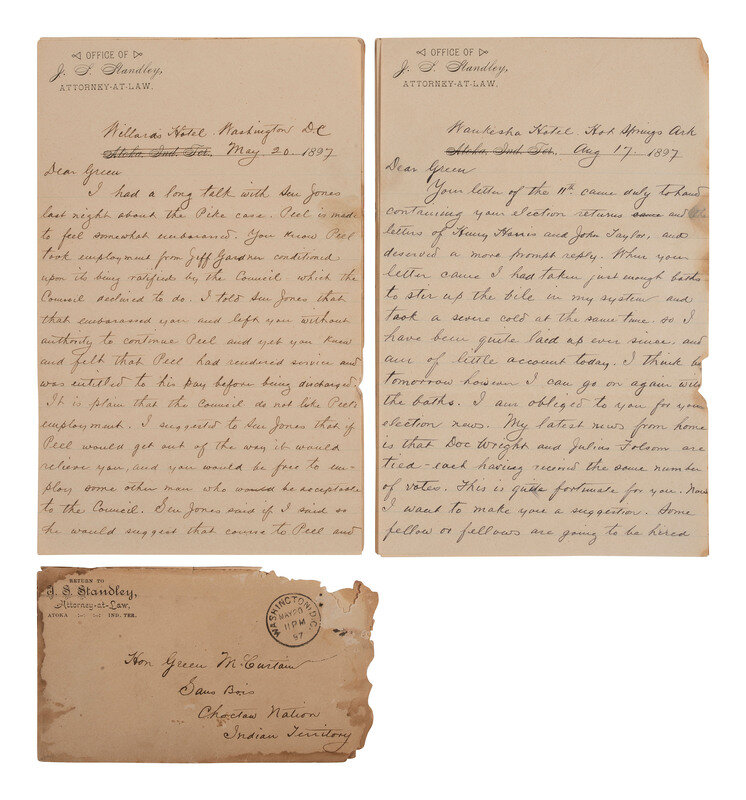 OFFICE OF
J. S. Standley,
ATTORNEY-AT-LAW.
Willards Hotel Washington DC
Atoka, Ind. Ter. May 20 1897
Dear Green
I had a long talk with Sen Jones
last night about the Pike case. Peel is made
to feel somewhat embarassed. You know Peel
took employment from Jeff Gardner conditioned
upon its being ratified by the Council - which the
Council declined to do. I told Sen Jones that
that embarassed you and left you without
authority to continue Peel and yet you knew
and felt that Peel had rendered service and
was entitled to his pay before being discharged
It is plain that the Council do not like Peel's
employment. I suggested to Sen Jones that if
Peel would get out of the way it would
relieve you, and you would be free to em-
ploy some other man who would be acceptable
to the Council. Sen Jones said if I said so
he would suggest that course to Peel and
OFFICE OF
J. S. Standley,
ATTORNEY-AT-LAW.
Waukesha Hotel. Hot Springs Ark
Atoka, Ind. Ter. Aug 17 1897
Dear Green
Your letter of the 11th came duly to hand
containing your election returns and the
letters of Henry Harris and John Taylor, and
deserved a more prompt reply. When your
letter came I had taken just enough baths
to stir up the bile in my system and
took a severe cold at the same time so I
have been quite laid up ever since, and
am of little account today. I think by
tomorrow however I can go on again with
the baths. I am obliged to you for your
election news. My latest news from home
is that Doc Wright and Julius Folsom are
tied - each having received the same number
of votes. This is quite fortunate for you. Now
I want to make you a suggestion. Some
fellow or fellows are going to be hired
RETURN TO
J. S. Standley,
Attorney-at-Law,
ATOKA IND. TER.
WASHINGTON, D.C.
MAY 20
11 PM
97
Hon Green McCurtain
Sans Bois
Choctaw Nation
Indian Territory